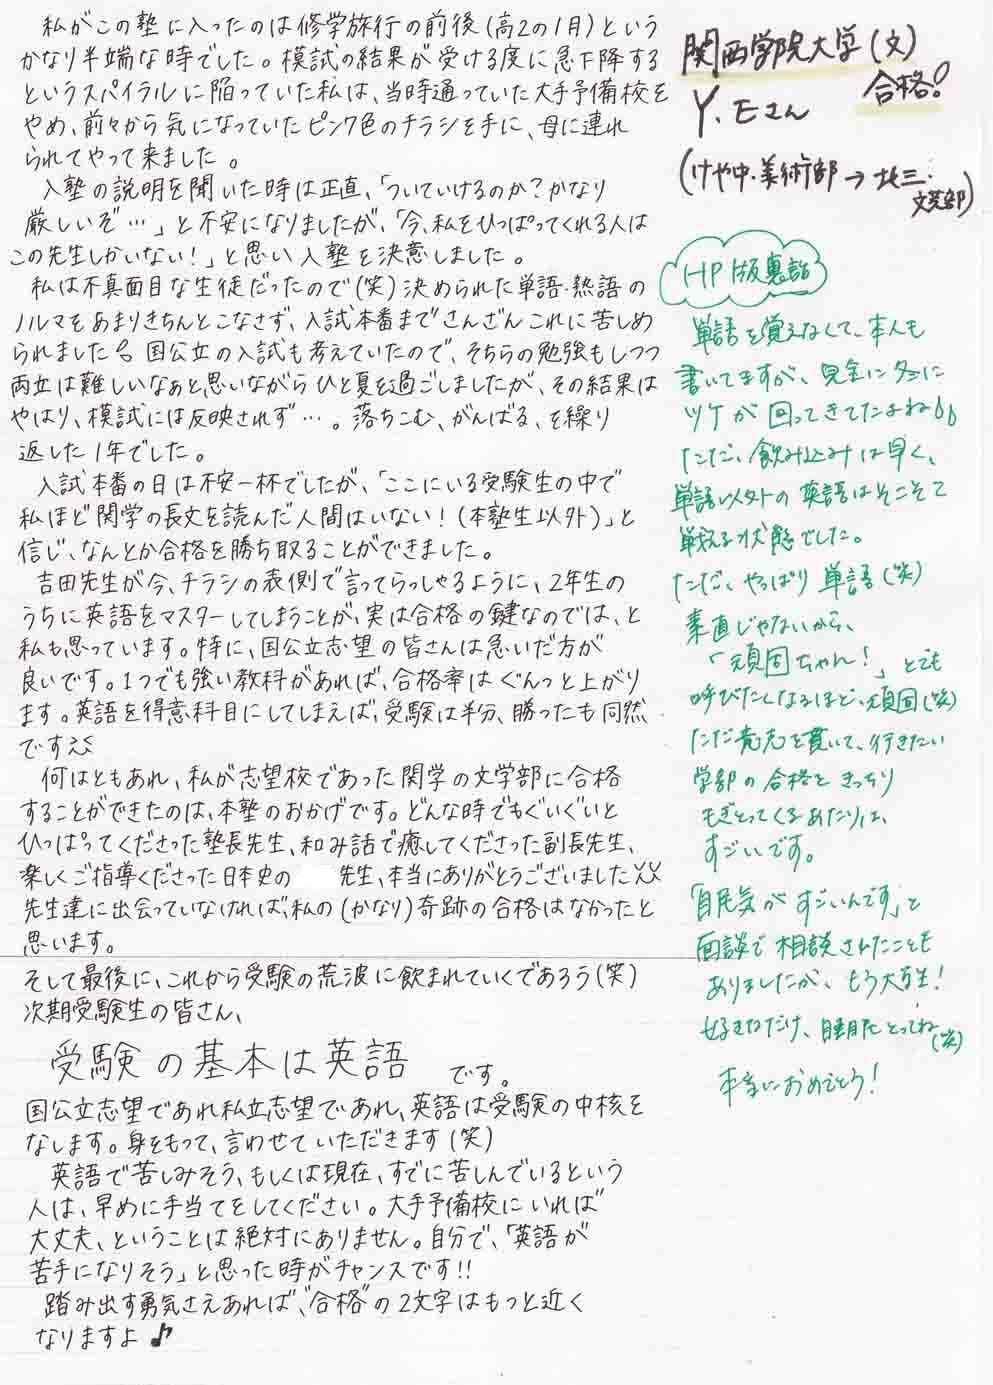 私がこの塾に入ったのは修学旅行の前後(高2の1月)という
かなり半端な時でした。模試の結果が受ける度に急下降する
というスパイラルに陥っていた私は、当時通っていた大手予備校を
やめ、前々から気になっていたピンク色のチラシを手に、母に連れ
られてやって来ました。
入塾の説明を聞いた時は正直、「ついていけるのか?かなり
厳しいぞ…」と不安になりましたが、「今、私をひっぱってくれる人は
この先生しかいない!」と思い入塾を決意しました。
私は不真面目な生徒だったので(笑)決められた単語・熟語の
ノルマをあまりきちんとこなさず、入試本番までさんざんこれに苦しめ
られました。国公立の入試も考えていたので、そちらの勉強もしつつ
両立は難しいなぁと思いながらひと夏を過ごしましたが、その結果は
やはり、模試には反映されず…。落ちこむ、がんばる、を繰り
返した1年でした。
入試本番の日は不安一杯でしたが、「ここにいる受験生の中で
私ほど関学の長文を読んだ人間はいない!(本塾生以外)」と
信じ、なんとか合格を勝ち取ることができました。
吉田先生が今、チラシの表側で言ってらっしゃるように、2年生の
うちに英語をマスターしてしまうことが、実は合格の鍵なのでは、と
私も思っています。特に、国公立志望の皆さんは急いだ方が
良いです。1つでも強い教科があれば、合格率はぐんっと上がり
ます。英語を得意科目にしてしまえば、受験は半分、勝ったも同然
です
何はともあれ、私が志望校であった関学の文学部に合格
することができたのは、本塾のおかげです。どんな時でもぐいぐいと
ひっぱってくださった塾長先生、和み話で癒してくださった副長先生、
楽しくご指導くださった日本史の 先生、本当にありがとうございました
先生達に出会っていなければ、私の(かなり)奇跡の合格はなかったと
思います。
そして最後に、これから受験の荒波に飲まれていくであろう(笑)
次期受験生の皆さん、
受験の基本は英語 です。
国公立志望であれ私立志望であれ、英語は受験の中核を
なします。身をもって、言わせていただきます(笑)
英語で苦しみそう、もしくは現在、すでに苦しんでいるという
人は、早めに手当てをしてください。大手予備校にいれば
大丈夫、ということは絶対にありません。自分で、「英語が
苦手になりそう」と思った時がチャンスです!!
踏み出す勇気さえあれば、"合格"の2文字はもっと近く
なりますよ♪
関西学院大学(文)
合格!
Y.Eさん
(けや中・美術部→北三・
文芸部)
HP版裏話
単語を覚えなくて、本人も
書いてますが、完全に
ツケが回ってきてたよね
ただ、飲み込みは早く、
単語以外の英語はそこそこ
戦える状態でした。
ただ、やっぱり単語(笑)
素直じゃないから、
「頑固ちゃん!」とでも
呼びたくなるほど、頑固(笑)
ただ意志を貫いて、行きたい
学部の合格をきっちり
もぎとってくるあたりは、
すごいです。
「眠気がすごいんです」と
面談で相談されたことも
ありましたが、もう大学生!
好きなだけ、睡眠とってね(笑)
本当におめでとう!